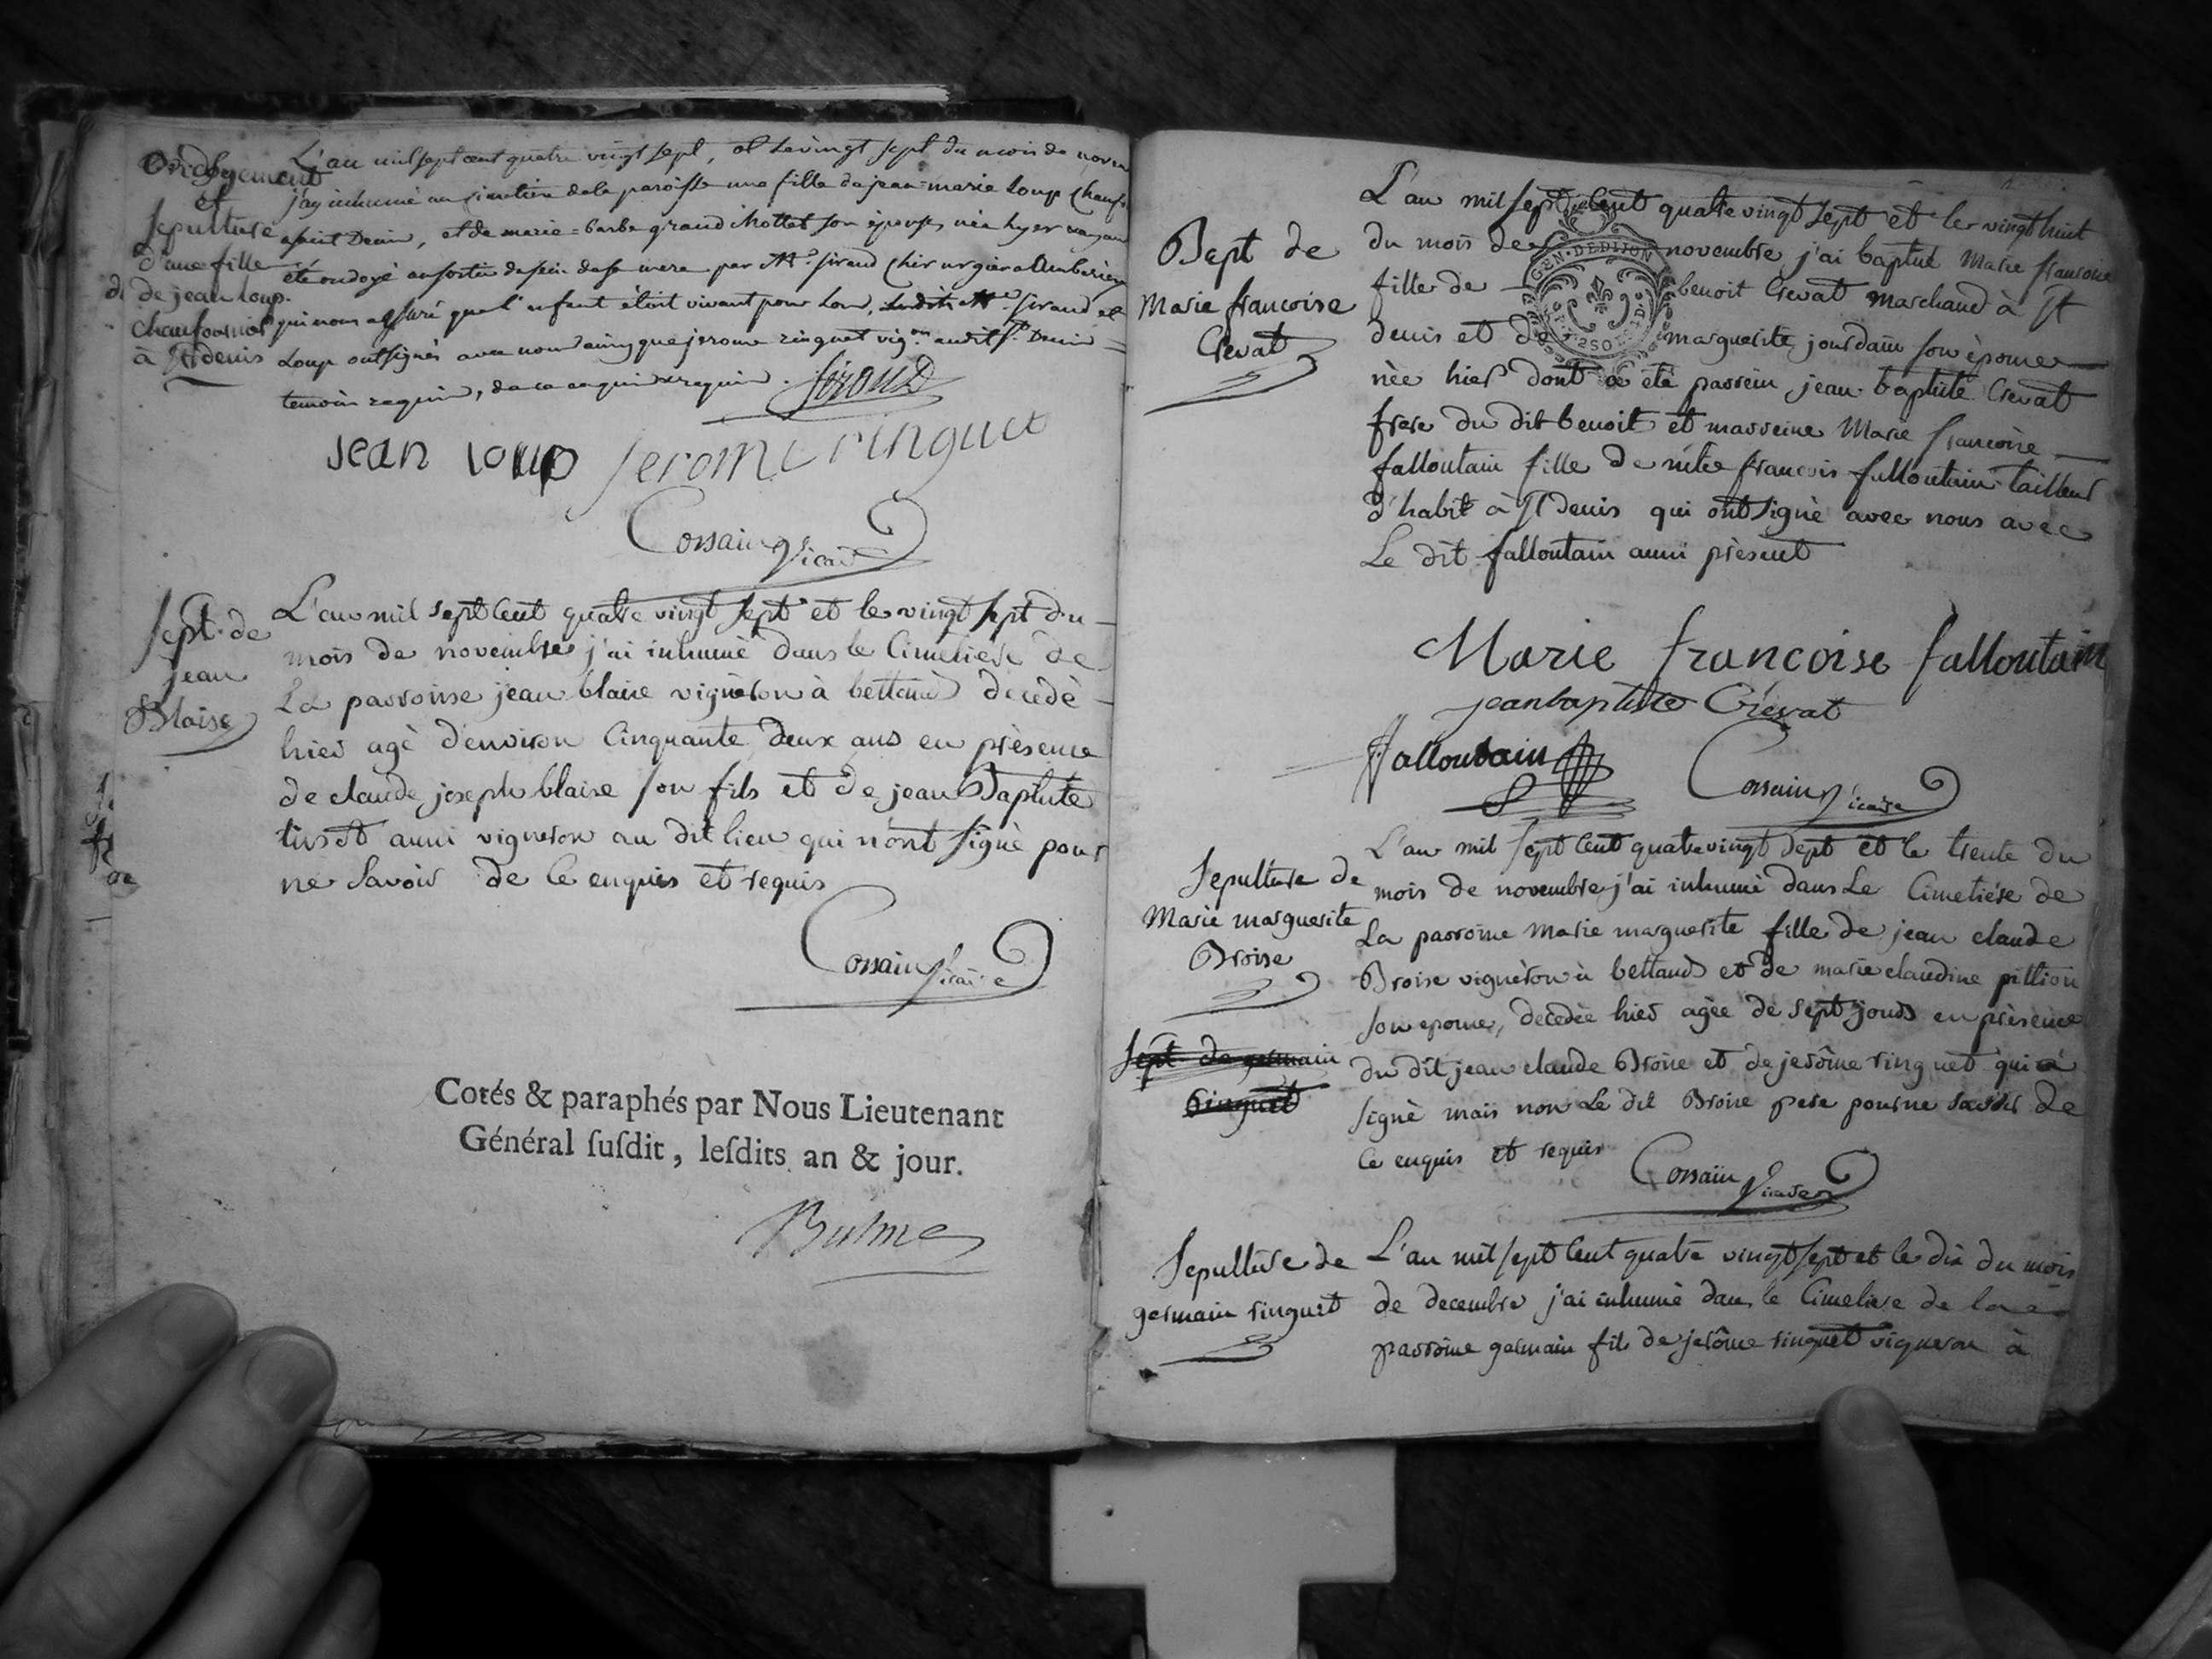 ondoyement
et
sepulture
d'une fille
de jean loup
chaufournier
à st denis
L'an mil sept cent quatre vingt sept, et le vingt sept du mois de novem
j'ay inhumé au cimetiere de la paroisse une fille de jean=marie loup chauf
a saint Denis, et de marie=barbe grand Mottet son épouse, née hyer
été ondoyé au sortir du sein de sa mere par Mr. siraud chirurgien a Amberieu
qui nous a assuré que l'enfant étoit vivant pour lors, ledit Mr. siraud et
Loup ont signés avec nous ainsy que jerome ringuet vig.on audit st. Denis
temoin requis, de ce enquis requis.
Siraud
jean loup jerome ringuet
Corsain Vicaire
Sept. de
jean
Blaise
L'an mil sept cent quatre vingt sept et le vingt sept du
mois de novembre j'ai inhumé dans le Cimetiere de
La parroisse jean blaise vigneron à bettand décédé
hier agé d'environ Cinquante deux ans en présence
de claude joseph blaise son fils et de jean Baptiste
aussi vigneron au dit lieu qui n'ont signé pour
ne savoir de ce enquis et requis
Corsain Vicaire
Cotés & paraphés par Nous Lieutenant
Général ſuſdit, leſdits an & jour.
Bapt de
Marie francoise
Crevat
GEN. DE DIJON
L'an mil sept cent quatre vingt sept et le vingt huit
du mois de novembre j'ai baptisé Marie francoise
fille de benoit Crevat marchand à st
denis et de marguerite jourdain son épouse
née hier dont a été parrein jean baptiste Crevat
frere du dit benoit et marreine Marie francoise
falloutain fille de francois falloutain tailleur
d'habit à st denis qui ont signé avec nous avec
Le dit falloutain aussi présent
Marie francoise falloutain
jean baptiste Crevat
falloutain Corsain Vicaire
Sepulture de
Marie marguerite
Broise
L'an mil sept cent quatre vingt sept et le trente du
mois de novembre j'ai inhumé dans Le Cimetiére de
La parroisse marie marguerite fille de jean claude
Broise vigneron à bettand et de marie claudine pittion
son epouse, decedée hier agée de sept jours en présence
du dit jean claude Broise et de jerôme ringuet qui a
signé mais non Le dit Broise pere pour ne savoir de
ce enquis et requis
Corsain Vicaire
Sept de germain
Ringuet
Sepulture de
germain ringuet
L'an mil sept cent quatre vingt sept et le dix du mois
de decembre j'ai inhumé dans le Cimetiere de la
parroisse germain fils de jerôme ringuet vigneron à